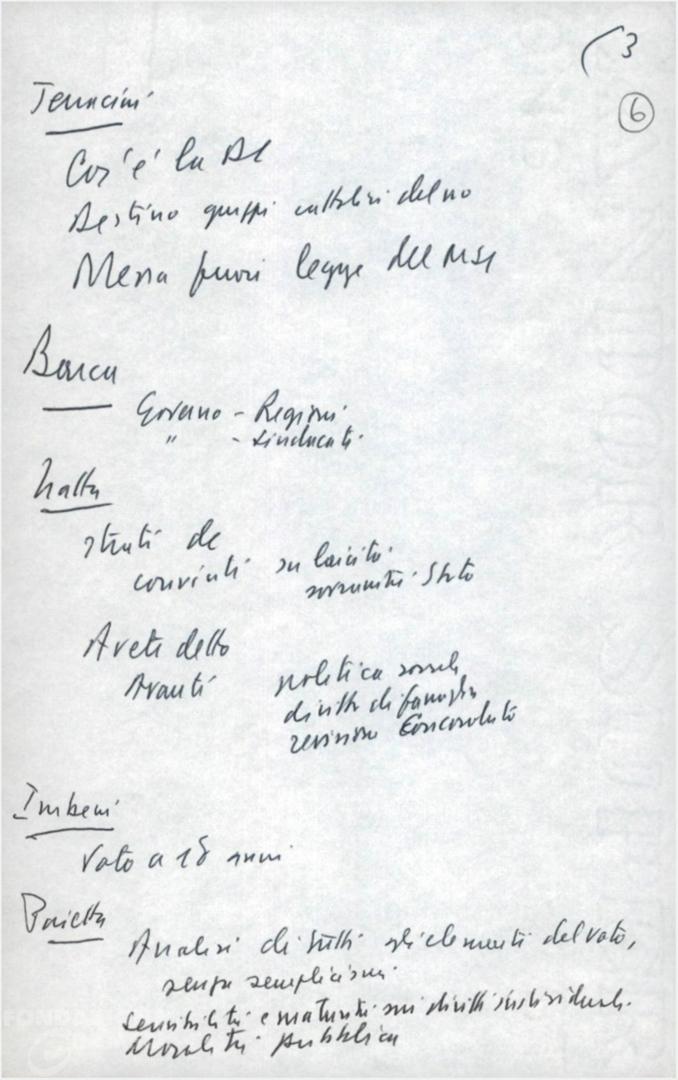 3
6
Terracini
Cos'è la DC
Destino gruppi cattolici del no
Messa fuori legge del MSI
Barca
Governo - Regioni
" - sindacati
Natta
strati dc
convinti su laicità
sovranità Stato
Avete detto
Avanti politica sociale
diritto di famiglia
revisione Concordato
Imbeni
Voto a 18 anni
Pajetta
Analisi di tutti gli elementi del voto,
senza semplicismi
Sensibilità e maturità sui diritti individuali.
Moralità pubblica
FONDA